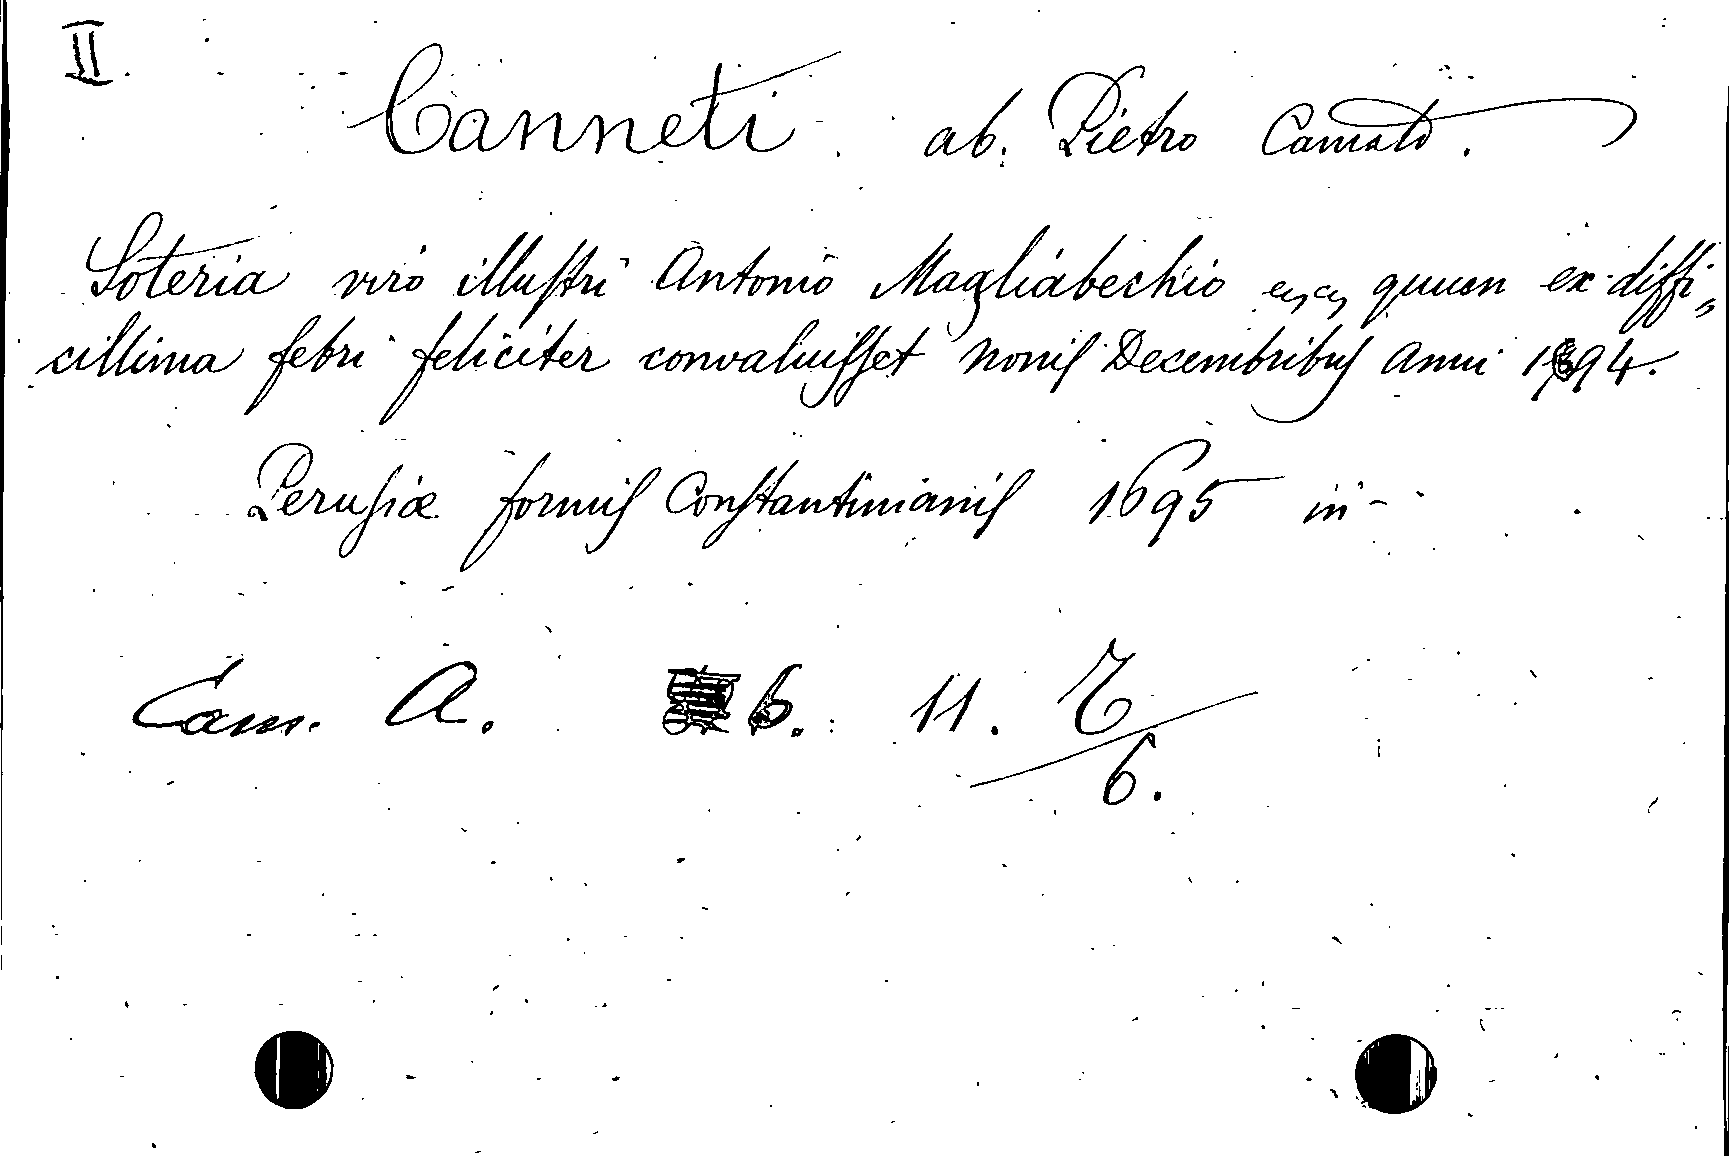 II.
Canneti ab. Pietro Camald.
Soteria viro illustri Antonio Magliabechio quum ex diffi„
cillima febri feliciter convaluisset nonis Decembribus anni 1694.
Perusiæ formis Constantinianis 1695 in -
Cam. A. 6. 11. 6.